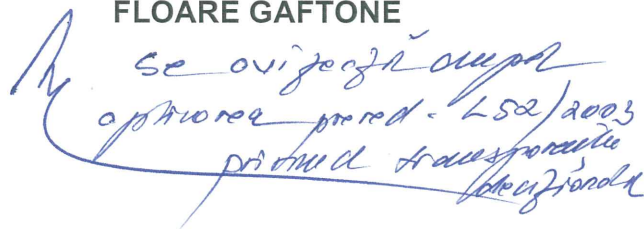 FLOARE GAFTONE
se avizează după
aplicarea prered. L52/2003
privind transparența
decizională